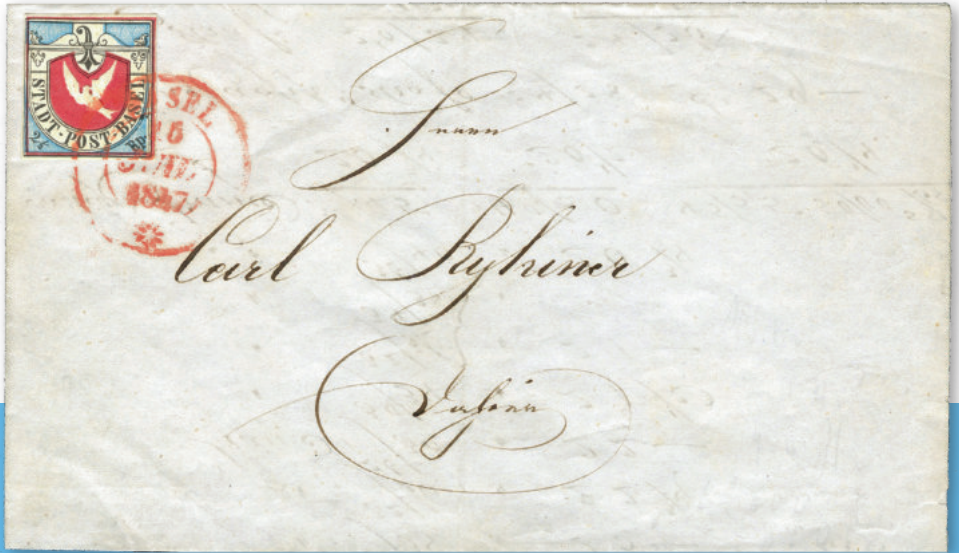 STADT-POST-BASEL
2½ Rp.
BASEL
1847
Herrn
Carl Ryhiner
Dahier